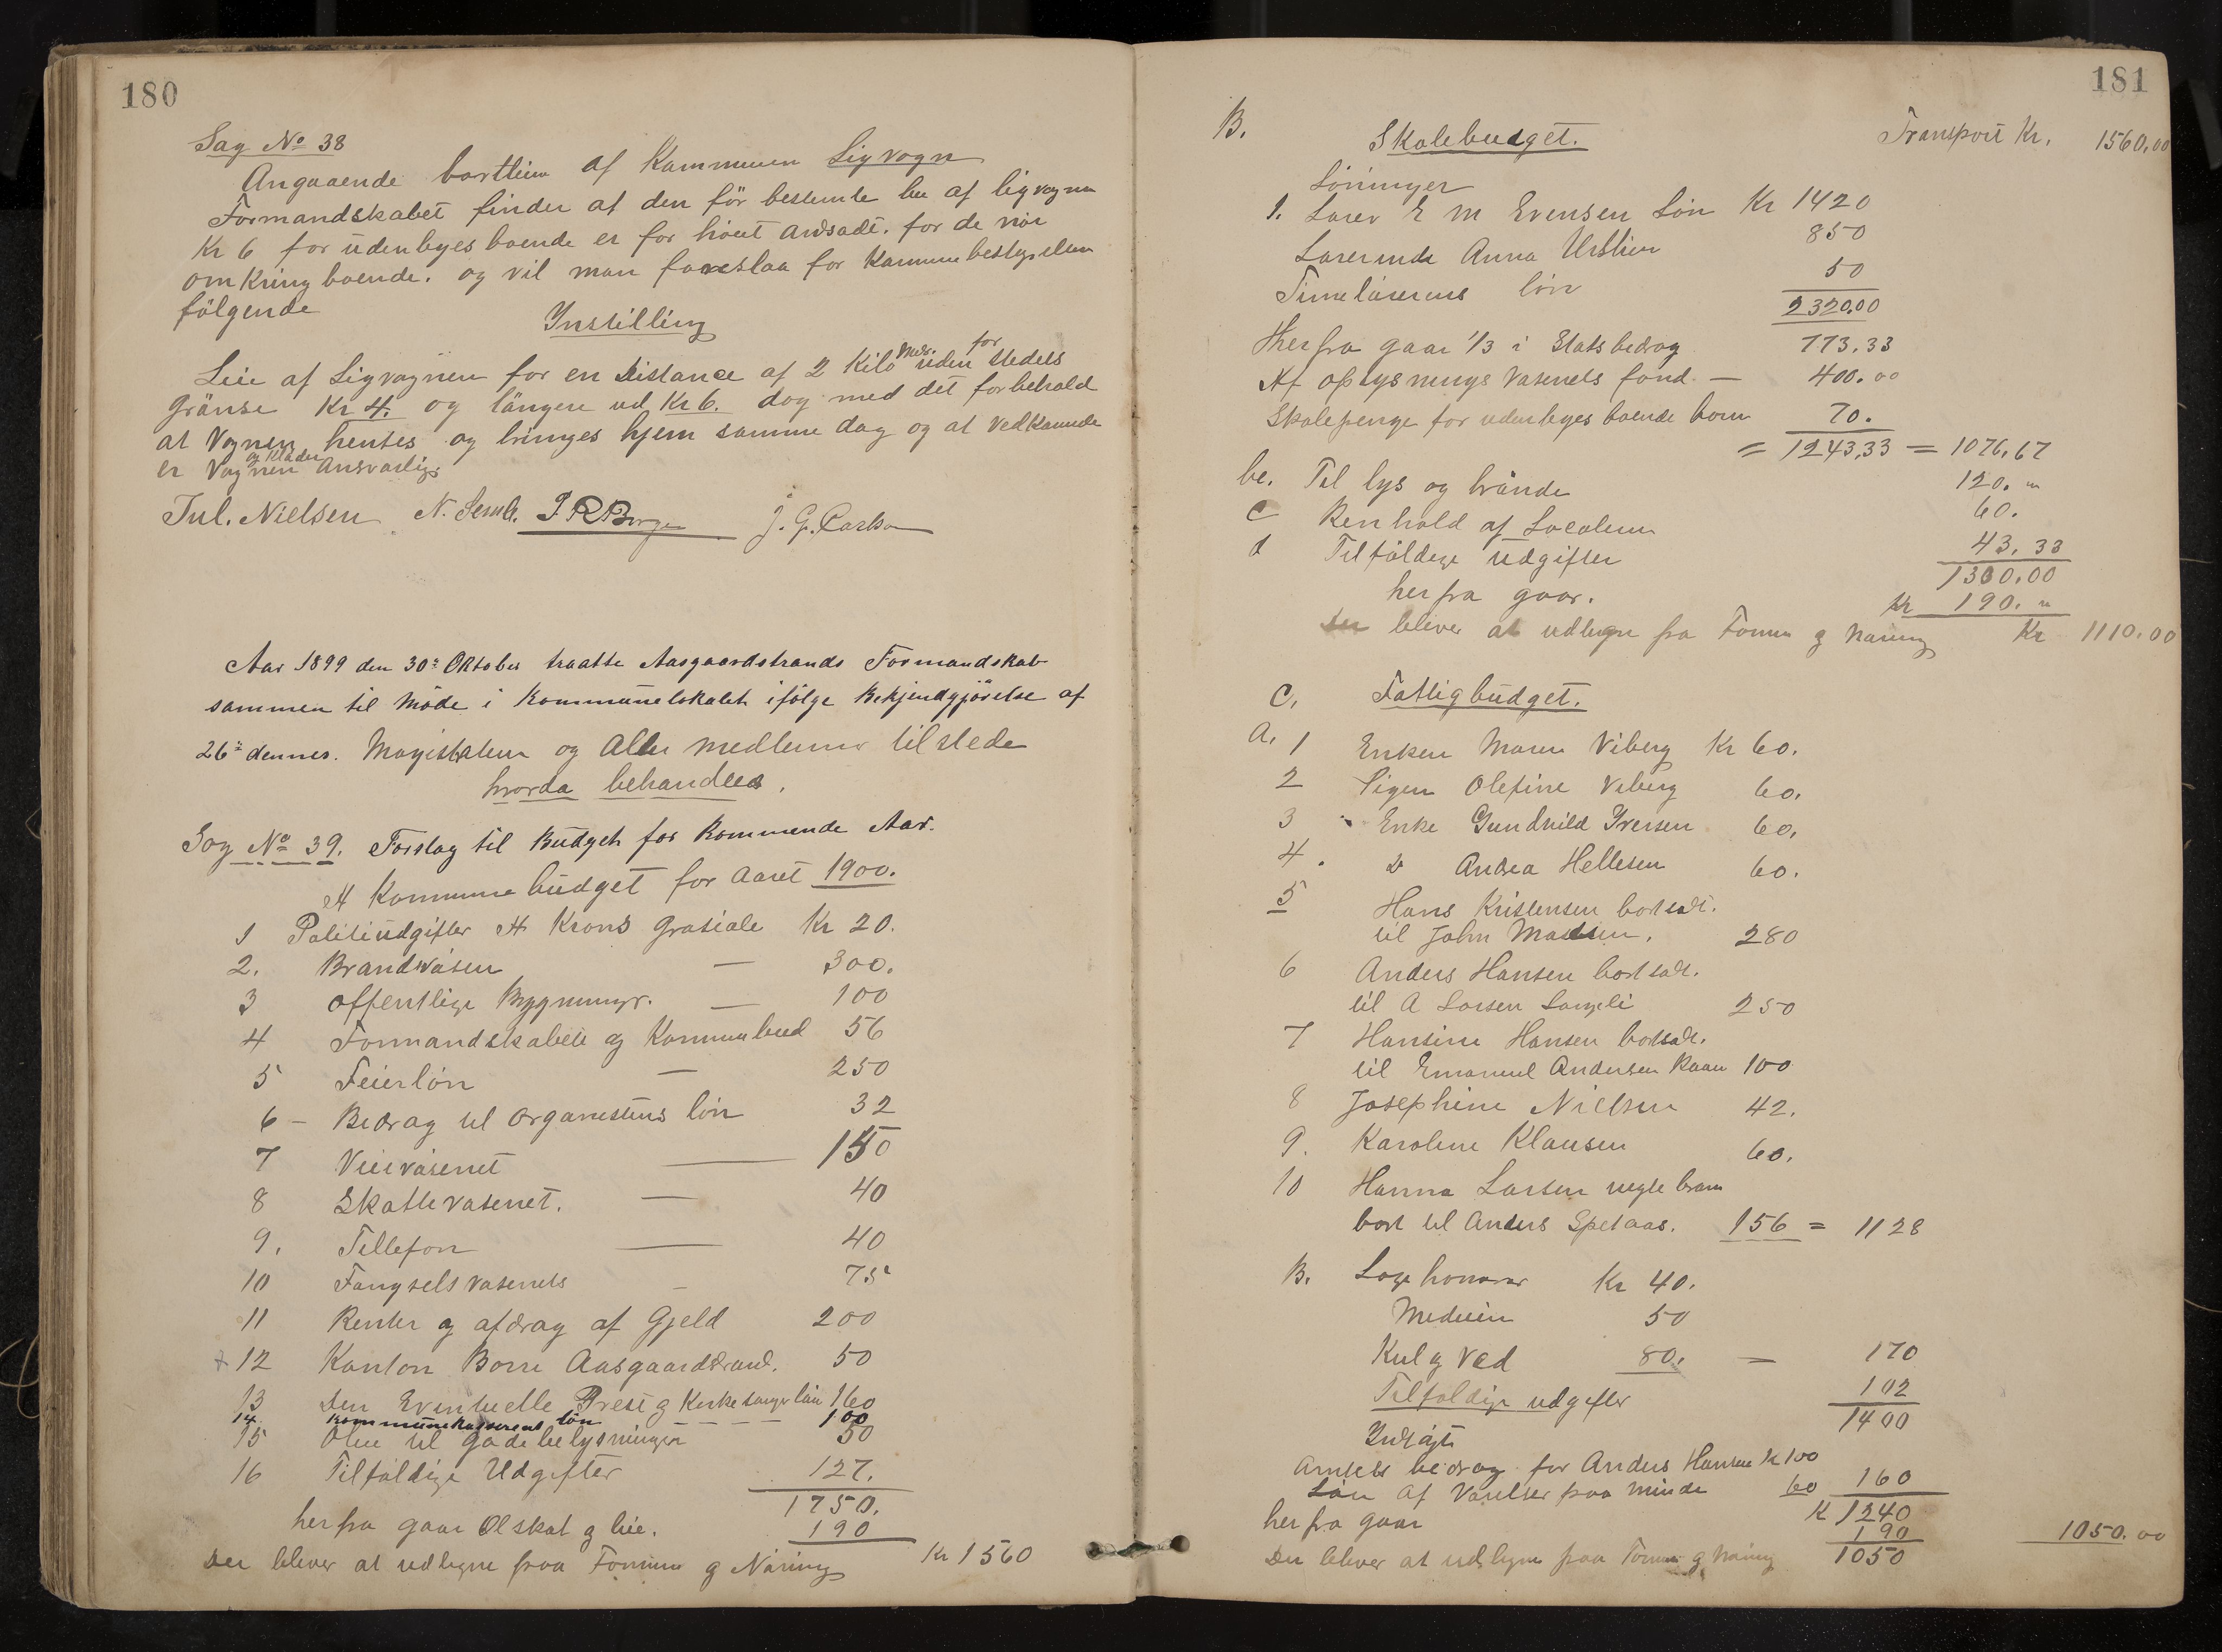 180
Sag No 38
Angaaende bortleie af Kommunen Ligvogn
Formandskabet finder at den för bestemte leie af ligvogna
Kr 6 for udenbyes boende er for höit ansadt. for de när
omkring boende. og vil man foreslaa for Kommunebestyrelsen
fölgende
Instilling
Leie af Ligvognen for en Distance af 2 Kilo Metr. uden for stedets
Gränse Kr 4. og längere ud Kr 6. dog med det forbehold
at Vognen hentes og bringes hjem samme dag og at Vedkommende
er Vognen og Kläder Ansvarlig.
Jul. Nielsen N. Semb. P R Borge J. G. Carlson
Aar 1899 den 30te Oktober traatte Aasgaardstrands Formandskab
sammen til Möde i Kommunelokalet ifölge Bekjendgjörelse af
26de dennes. Magistraten og Aller medlemer tilstede
hvorda behandles.
Sag No 39. Forslag til Budget for Kommende Aar.
A Kommune budget for Aaret 1900.
1 Politiudgifter A Krons Grasiale Kr 20.
2. Brandväsen — 300.
3 offentlige Bygninger. — 100
4 Formandskabets og Kommunebud 56
5 Feierlön — 250
6 — Bedrag til organistens lön 32
7 Veiväsenet — 150
8 Skattevasenet. — 40
9. Tillefon — 40
10 Fangselsvasenets — 75
11 Renter og afdrag af Gjeld 200
+ 12 Kanton Borre Aasgaardstrand. 50
13 Den Eventuelle Prest og Kirkesanger lön 160
14. Kommunekassererens lön — — — — 100
15 Olie til Gadebelysningen 50
16 Tilfäldige Udgifter 127.
1750.
herfra gaar Olskat og leie. 190
Der bliver at udligne paa Formue og Näring Kr 1560
181
B. Skolebudget. Transport Kr. 1560.00
Löninger
1. Larer E M Evensen Lön Kr 1420
Larerinde Anna 850
Timelärerens lön 50
2320.00
Herfra gaar 1/3 i Statsbedrag 773.33
Af oplysnings Vasenets fond — 400.00
Skolepenge for udenbyes boende born 70.
= 1243.33 = 1076.67
be. Til lys og brände 120. "
c Renhold af Localerne 60.
d Tilfäldige udgifter 43.33
1300.00
herfra gaar. Kr 190. "
Der bliver at udligne paa Formue og Naring Kr 1110.00
C. Fattigbudget.
A. 1 Enken Maren Viberg Kr 60.
2 Pigen Olefine Viberg 60.
3 " Enke Gundhild Iversen 60.
4. D Andrea Hellesen 60.
5 Hans Kristensen bortsadt.
til John Madsen. 280
6 Anders Hansen bortsadt.
til A Larsen Langeli 250
7 Hansine Hansen bortsadt.
til Emanuel Andersen Raan 100
8 Josephine Nielsen 42.
9. Karoline Klausen 60.
10 Hanna Larsen uegte barn
bort til Anders Spetaas. 156 = 1128
B. Lage honorar Kr 40.
Medicin 50
Kul og Ved 80. — 170
Tilfaldige udgifter 102
1400
Indtägt
Amtets bedrag for Anders Hansen K 100
Leie af Varelser paa Minde 60 160
K 1240
herfra gaar 190 1050.00
Der bliver at udligne paa Formue og Naring 1050